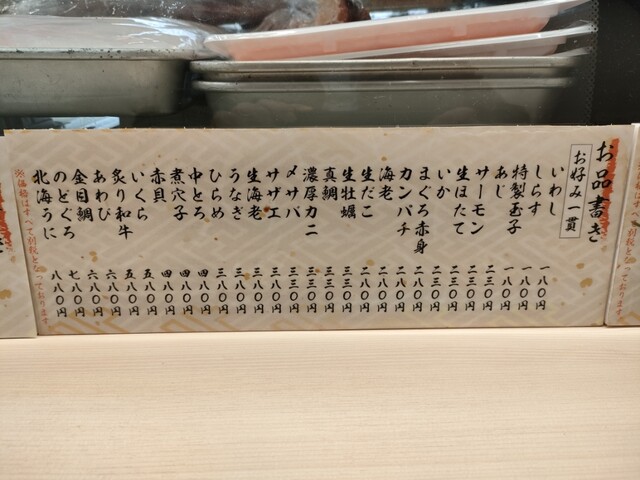 お品書き
お好み一貫
いわし 一八〇円
しらす 一八〇円
特製玉子 一八〇円
あじ 二三〇円
サーモン 二三〇円
生ほたて 二三〇円
いか 二三〇円
まぐろ赤身 二八〇円
カンパチ 二八〇円
海老 二八〇円
生だこ 二八〇円
生牡蠣 三三〇円
真鯛 三三〇円
濃厚カニ 三三〇円
〆サバ 三三〇円
サザエ 三八〇円
生海老 三八〇円
うなぎ 三八〇円
ひらめ 三八〇円
中とろ 四八〇円
煮穴子 四八〇円
赤貝 四八〇円
いくら 五八〇円
炙り和牛 五八〇円
あわび 六八〇円
金目鯛 六八〇円
のどぐろ 七八〇円
北海うに 八八〇円
※価格はすべて別税となっております。